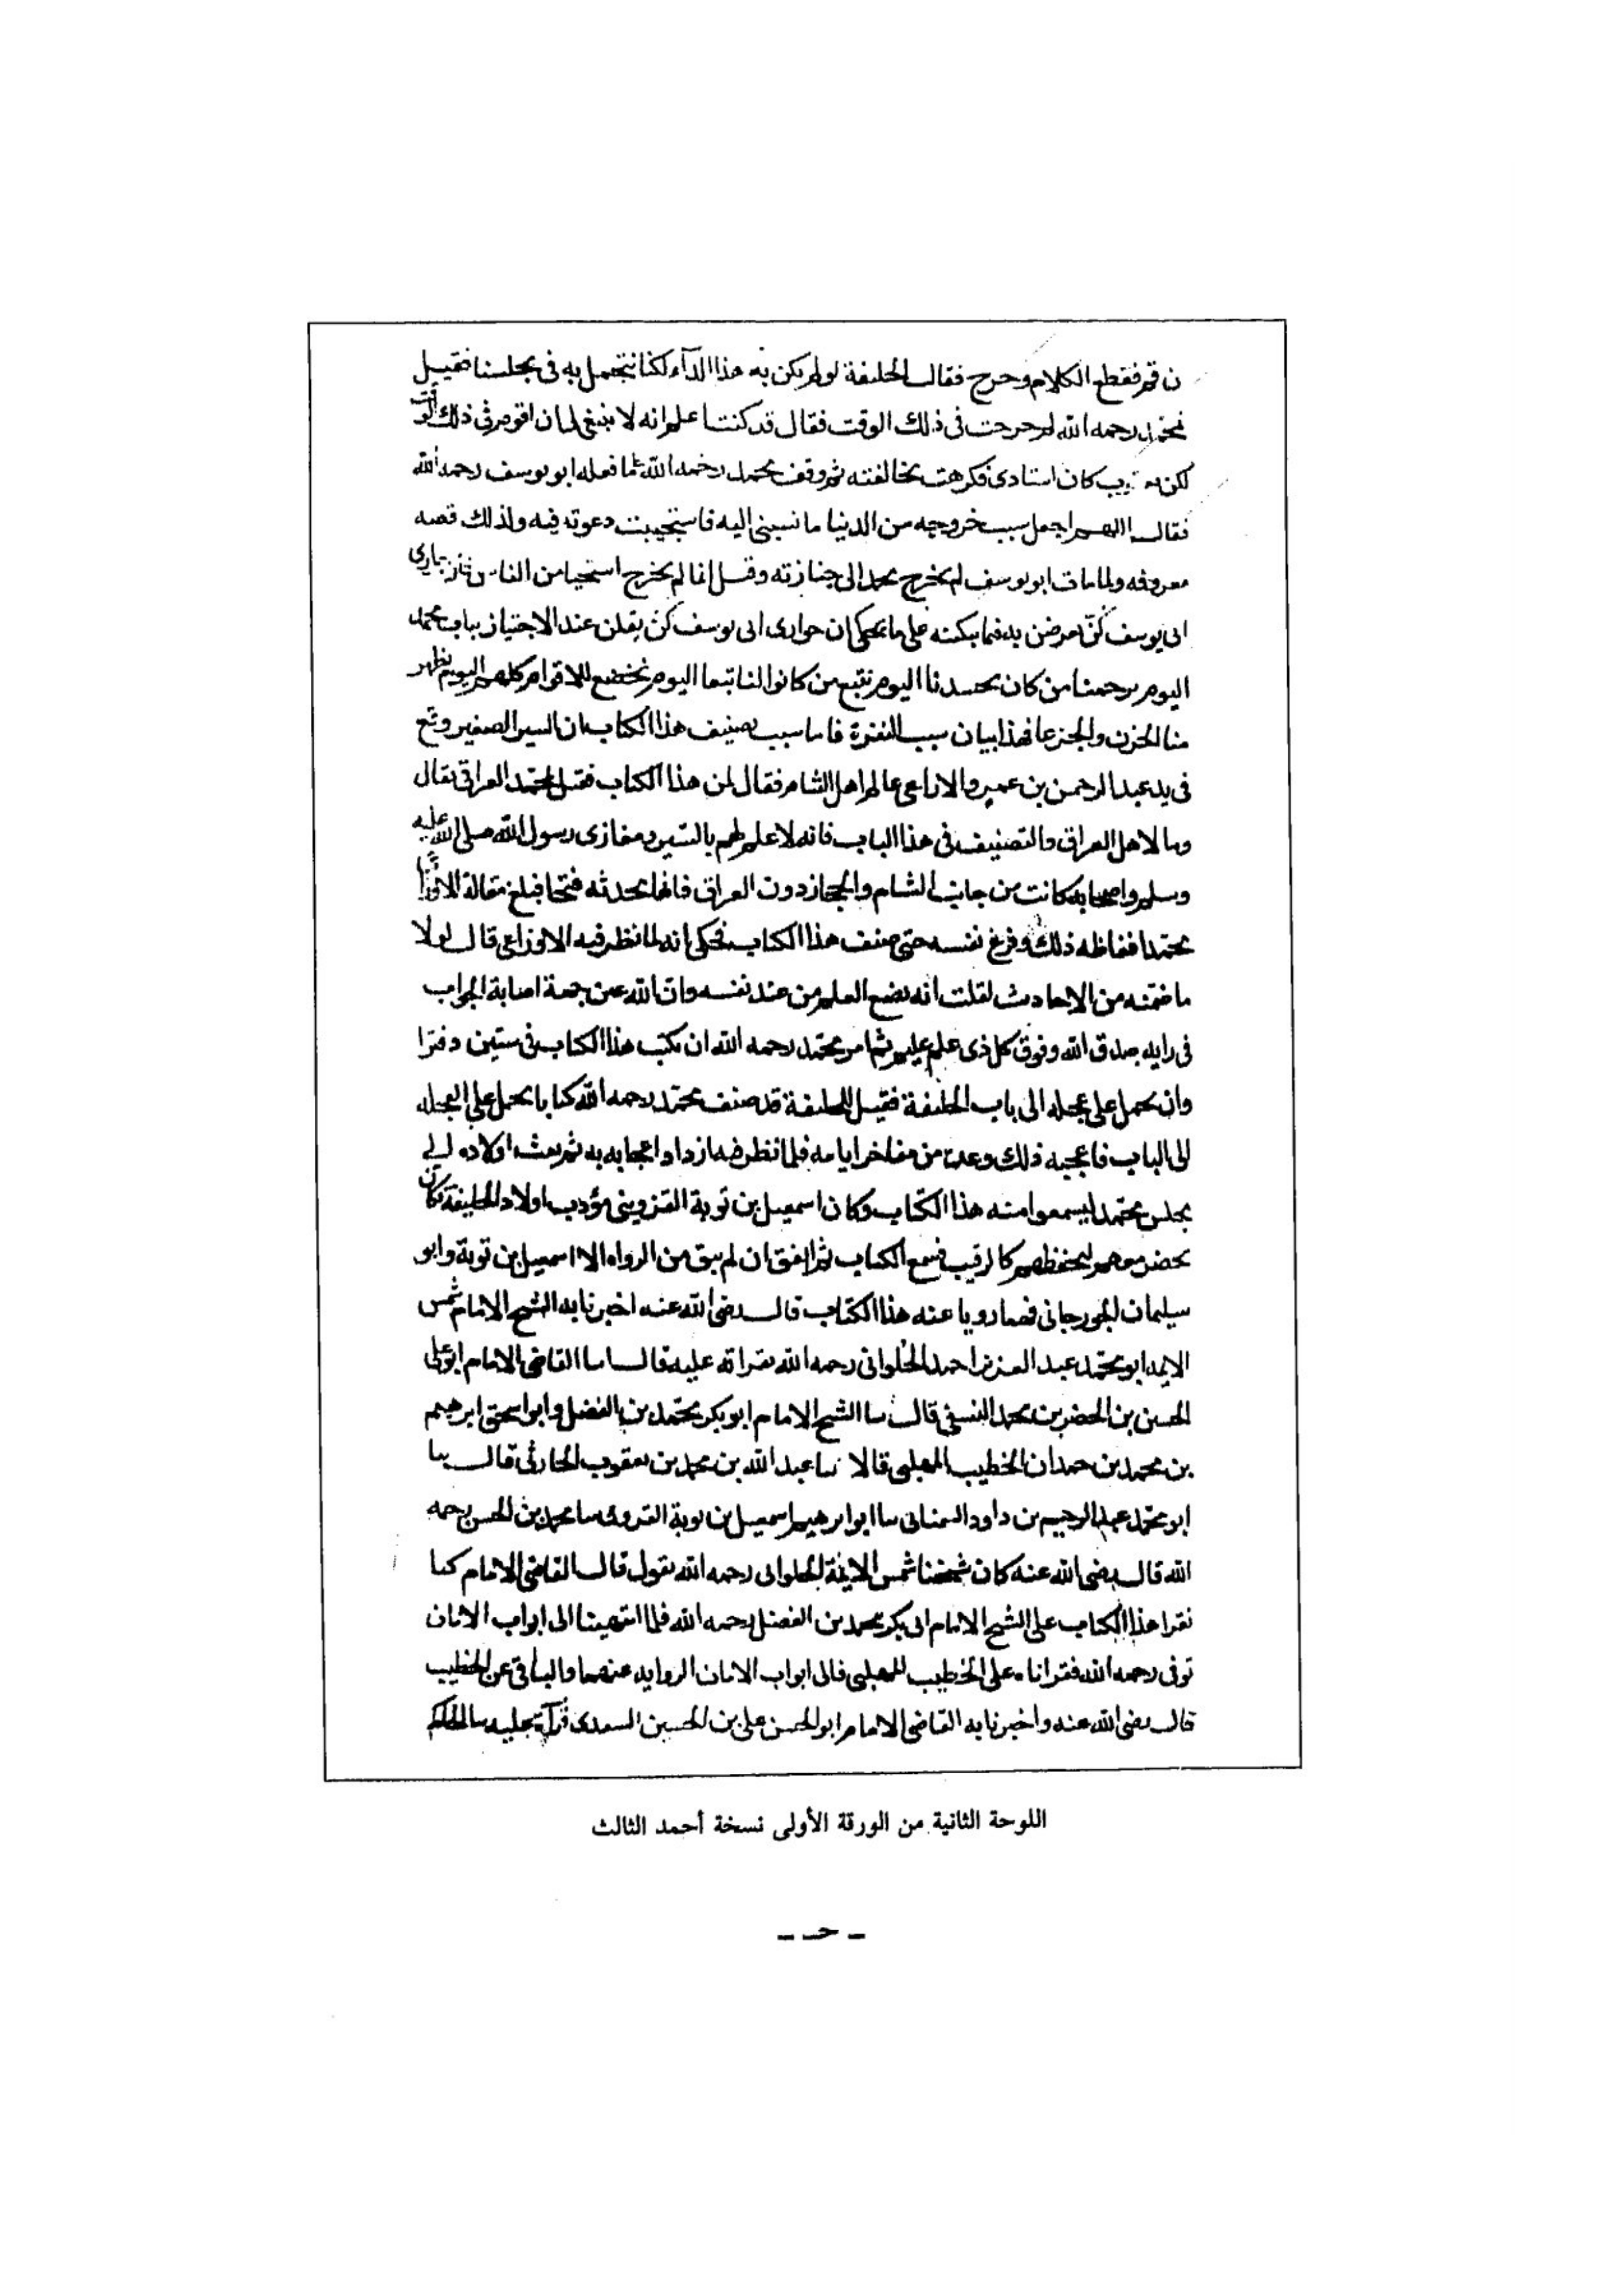 ن قم فقطع الكلام وخرج فقال الخليفة لو لم يكن به هذا الداء لكنا نتجمل به فى مجلسنا فقيل
لمحمد رحمه الله لم خرجت فى ذلك الوقت فقال قد كنت اعلم انه لا ينبغى لى ان اقوم فى ذلك الوقت
لكن يعقوب كان استادى فكرهت مخالفته ثم وقف محمد رحمه الله على ما فعله ابو يوسف رحمه الله
فقال اللهم اجعل سبب خروجه من الدنيا ما نسبنى اليه فاستجيبت دعوته فيه ولذلك قصه
معروفه ولما مات ابو يوسف لم يخرج محمد الى جنازته وقيل انما لم يخرج استحيا من الناس فان جوارى
ابى يوسف كن يعرضن به فيما يبكينه على ما يحكى ان جوارى ابى يوسف كن يقلن عند الاجتياز بباب محمد
اليوم يرحمنا من كان يحسدنا اليوم نتبع من كانوا لنا تبعا اليوم نخضع للاقوام كلهم اليوم نظهر
منا الحزن والجزعا فهذا بيان سبب النفرة فاما سبب تصنيف هذا الكتاب ان السير الصغير وقع
فى يد عبد الرحمن بن عمرو الاوزاعى عالم اهل الشام فقال لمن هذا الكتاب فقيل لمحمد العراقى فقال
وما لاهل العراق والتصنيف فى هذا الباب فانه لا علم لهم بالسير ومغازى رسول الله صلى الله عليه
وسلم واصحابه كانت من جانب الشام والحجاز دون العراق فانها محدثه فتحا فبلغ مقالة الاوزاعى
محمدا فغاظه ذلك وفرغ نفسه حتى صنف هذا الكتاب فحكى انه لما نظر فيه الاوزاعى قال لولا
ما ضمنه من الاحاديث لقلت انه يضع العلم من عند نفسه وان الله عين جهة اصابة الجواب
فى رايه صدق الله وفوق كل ذى علم عليم ثم امر محمد رحمه الله ان يكتب هذا الكتاب فى ستين دفترا
وان يحمل على عجله الى باب الخليفة فقيل للخليفة قد صنف محمد رحمه الله كتابا يحمل على العجله
الى الباب فاعجبه ذلك وعده من مفاخر ايامه فلما نظر فيه ازداد اعجابه به ثم بعث اولاده الى
مجلس محمد ليسمعوا منه هذا الكتاب وكان اسمعيل بن توبة القزوينى مؤدب اولاد الخليفة فكان
يحضر معهم ليحفظهم كالرقيب فسمع الكتاب ثم اتفق ان لم يبق من الرواه الا اسمعيل بن توبة وابو
سليمان الجوزجانى فهما رويا عنه هذا الكتاب قال رضى الله عنه اخبرنا به الشيخ الامام شمس
الايمه ابو محمد عبد العزيز احمد الحلوانى رحمه الله بقراته عليه قال اسا القاضى الامام ابو على
الحسين بن الخضر بن محمد النسفى قال سا الشيخ الامام ابو بكر محمد بن الفضل وابو اسحق ابرهيم
بن محمد بن حمدان الخطيب المهلبى قالا سا عبد الله بن محمد بن يعقوب الحارثى قال سا
ابو محمد عبد الرحيم بن داود السمنانى سا ابو ابرهيم اسمعيل بن توبة القزوينى سا محمد بن الحسن رحمه
الله قال رضى الله عنه كان شيخنا شمس الايمة الحلوانى رحمه الله يقول قال القاضى الامام كنا
نقرا هذا الكتاب على الشيخ الامام ابى بكر محمد بن الفضل رحمه الله فلما انتهينا الى ابواب الامان
توفى رحمه الله فقراناه على الخطيب المهلبى فالى ابواب الامان الروايه عنهما والباقى عن الخطيب
قال رضى الله عنه واخبرنا به القاضى الامام ابو الحسن على بن الحسين السعدى قرآة عليه سا الحاكم
اللوحة الثانية من الورقة الأولى نسخة أحمد الثالث
ـ حـ ـ